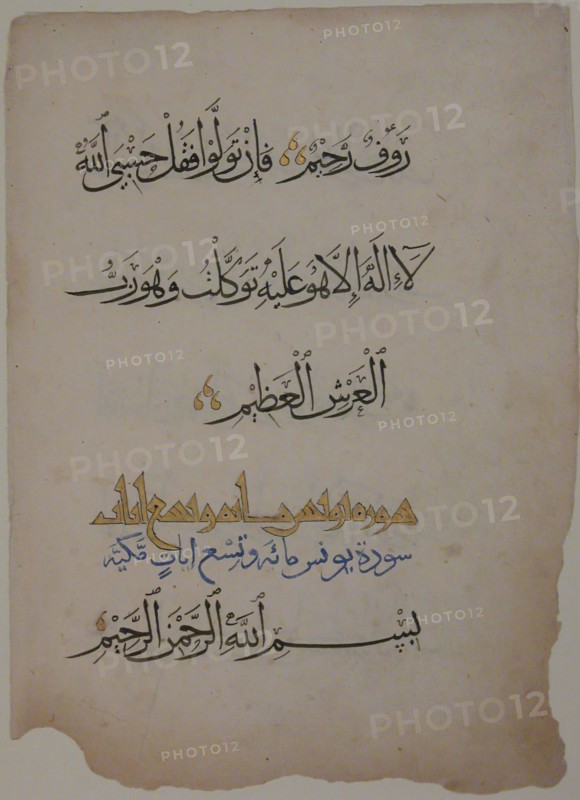 رَؤُفٌ رَّحِيْمٌ فَاِنْ تَوَلَّوْا فَقُلْ حَسْبِىَ ٱللَّهُ
لَآ اِلَهَ اِلَّا هُوَ عَلَيْهِ تَوَكَّلْتُ وَهْوَ رَبُّ
ٱلْعَرْشِ ٱلْعَظِيْمِ
سورة يونس مائة وتسع ايات
سورة يونس مائه وتسع اياتٍ مَّكيَّه
بِسْمِ ٱللَّهِ ٱلرَّحْمَٰنِ ٱلرَّحِيْمِ
PHOTO12